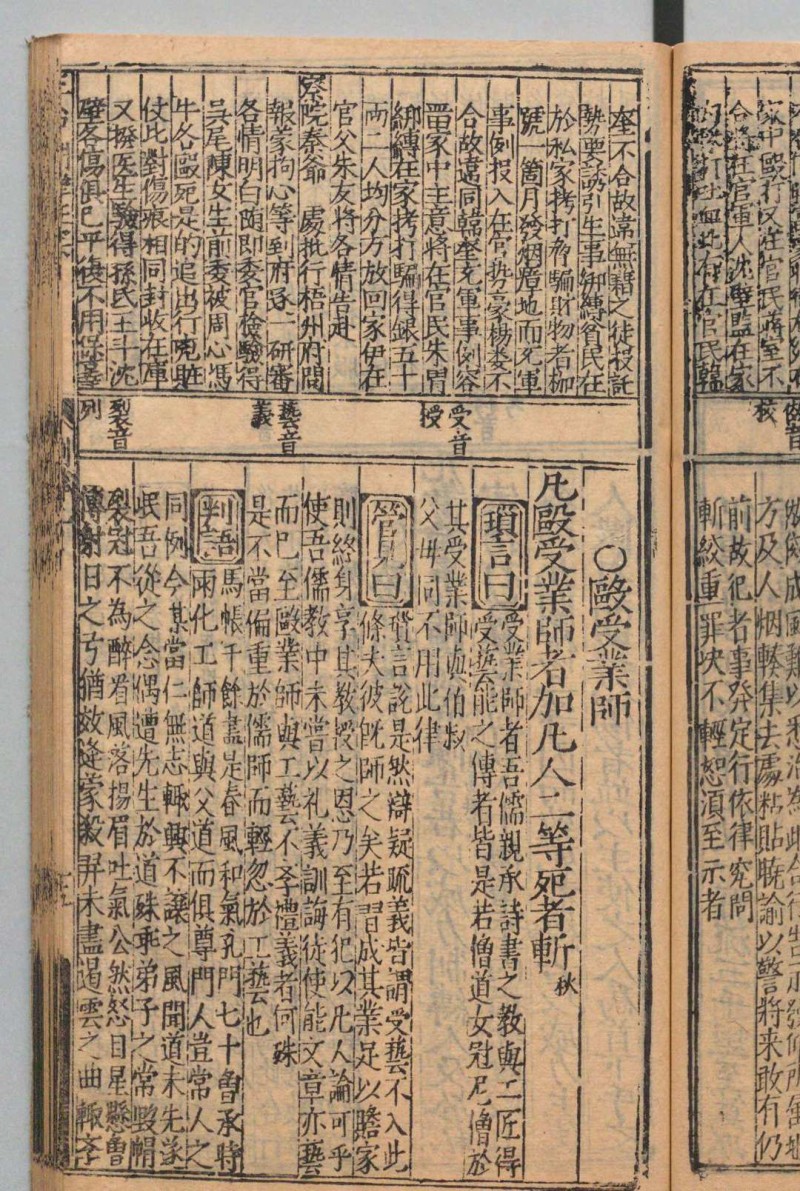 奎不合故違無籍之徒投託
勢要誘引生事綁縛貧民在
於私家拷打脅騙財物者枷
號一箇月發烟瘴地面充軍
事例投入在官勢豪楊娄不
合故違同韓奎充軍事例容
留家中主意將在官民朱胃
綁縛在家拷打騙得銀五十
兩二人均分方放回家伊在
官父朱友將各情告赴
察院秦爺 處批行梧州府問
報蒙拘心等到府逐一研審
各情明白随即委官檢驗得
吳尾陳女生前委被周心馮
牛各毆死是的追出行兇賍
仗比對傷痕相同封收在庫
又撥医生驗得孫氏王斗沈
璧各傷俱已平復不用保辜
受音
授
藝音
義
裂音
列
○毆受業師
凡毆受業師者加凡人二等死者斬 秋
瑣言曰 受業師者吾儒親承詩書之教與工匠得
受藝能之傳者皆是若僧道女冠尼僧於
其受業師與伯叔
父母同不用此律
管見曰 瑣言説是然辯疑疏義皆謂受藝不入此
條夫彼既師之矣若習成其業足以贍家
則終身享其教授之恩乃至有犯以凡人論可乎
使吾儒教中未嘗以礼義訓誨徒使能文章亦藝
而已至毆業師與工藝不孝禮義者何殊
是不當偏重於儒師而輕忽於工藝也
判語 馬帳千餘盡是春風和氣孔門七十魯承時
雨化工師道與父道而俱尊門人豈常人之
同例今某當仁無志輙興不讓之風聞道未先遂
岷吾從之念偶遭先生於道殊乖弟子之常毀帽
裂冠不為醉看風落揚眉吐氣公然怒目星懸魯
傳謝日之亏猶效逄蒙殺羿未盡遏雲之曲輙李
方及人烟輳集去處粘貼曉諭以警將来敢有仍
前故犯者事發定行依律究問
斬絞重罪决不輕恕湏至示者